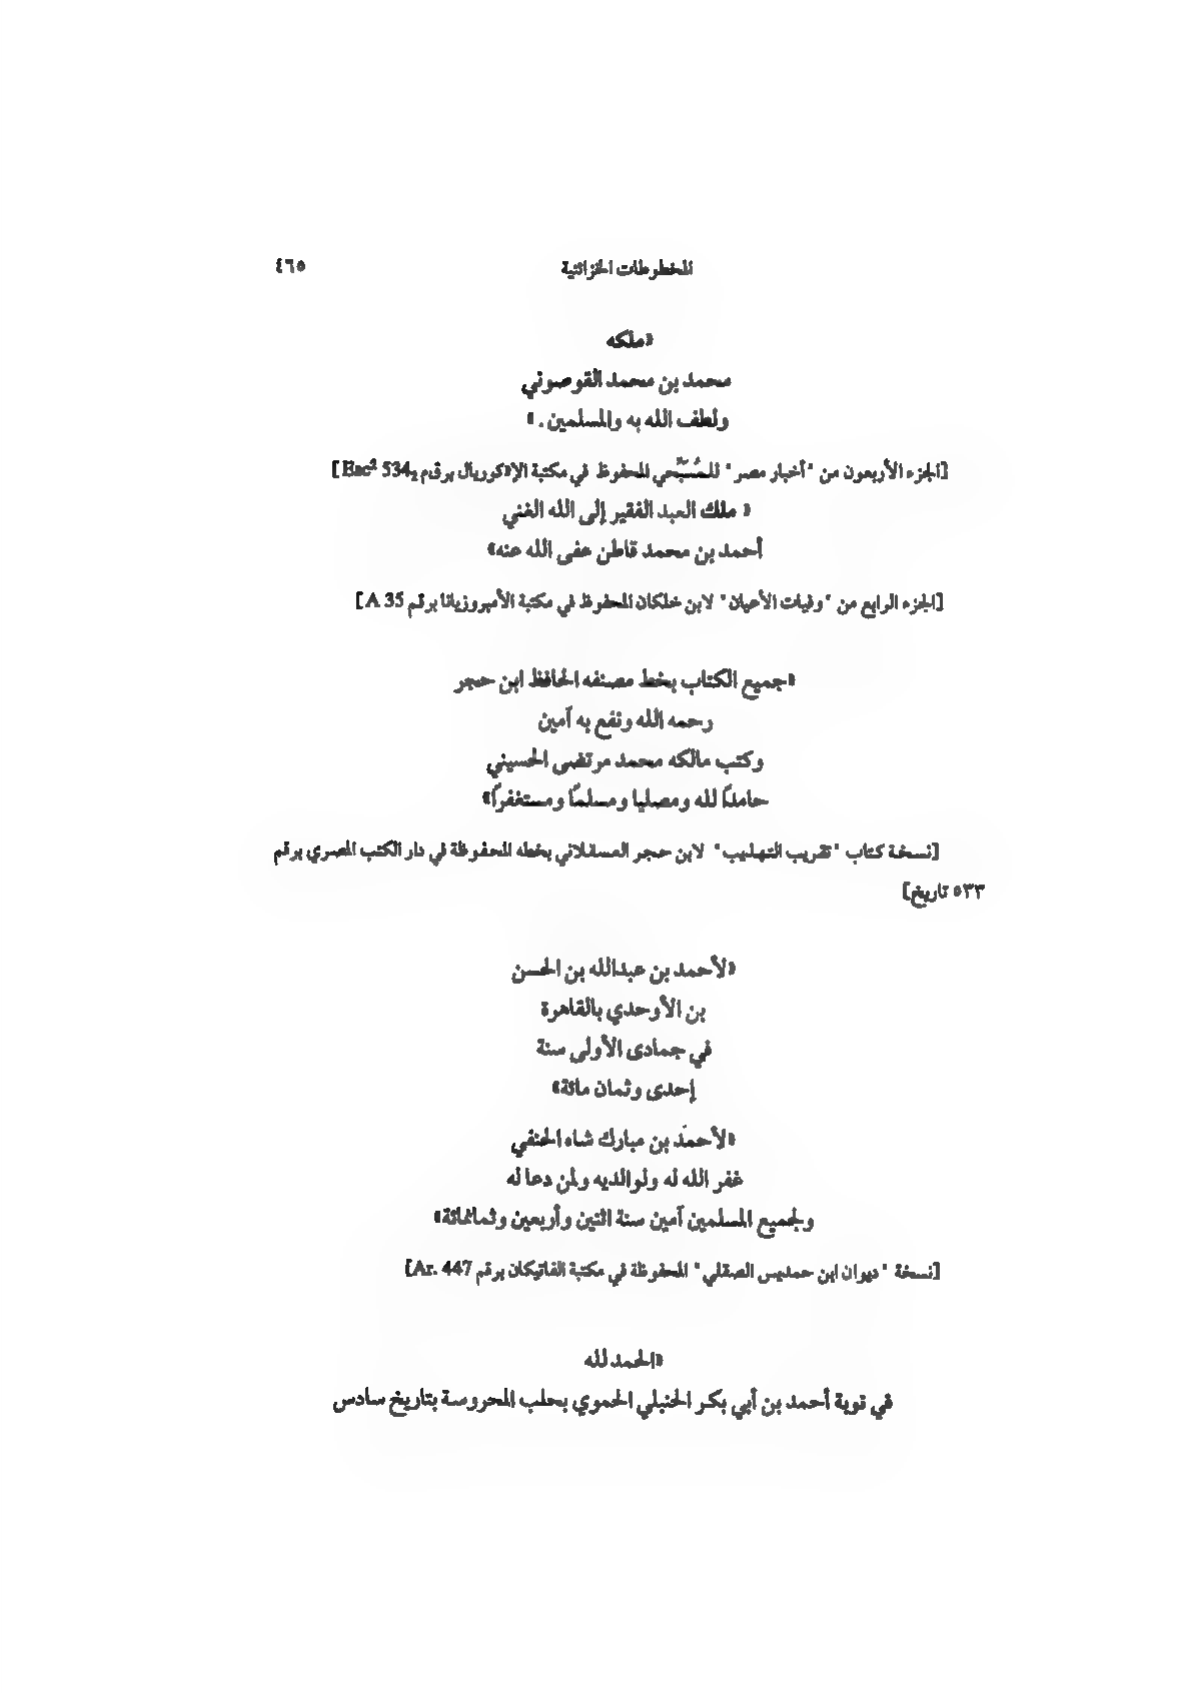 المخطوطات الخزائنية ٤٦٥
«ملكه
محمد بن محمد القوصوني
ولطف الله به والمسلمين . »
[الجزء الأربعون من "أخبار مصر" للمُسَبِّحي المحفوظ في مكتبة الإسكوريال برقم Esc² 534₂]
« ملك العبد الفقير إلى الله الغني
أحمد بن محمد قاطن عفى الله عنه»
[الجزء الرابع من "وفيات الأعيان" لابن خلكان المحفوظ في مكتبة الأمبروزيانا برقم A 35]
«جميع الكتاب بخط مصنفه الحافظ ابن حجر
رحمه الله ونفع به آمين
وكتب مالكه محمد مرتضى الحسيني
حامدًا لله ومصليا ومسلمًا ومستغفرًا»
[نسخة كتاب "تقريب التهذيب" لابن حجر العسقلاني بخطه المحفوظة في دار الكتب المصري برقم
٥٣٣ تاريخ]
«لأحمد بن عبدالله بن الحسن
بن الأوحدي بالقاهرة
في جمادى الأولى سنة
إحدى وثمان مائة»
«لأحمد بن مبارك شاه الحنفي
غفر الله له ولوالديه ولمن دعا له
ولجميع المسلمين آمين سنة اثنين وأربعين وثمانمائة»
[نسخة "ديوان ابن حمديس الصقلي" المحفوظة في مكتبة الفاتيكان برقم Ar. 447]
«الحمد لله
في نوبة أحمد بن أبي بكر الحنبلي الحموي بحلب المحروسة بتاريخ سادس